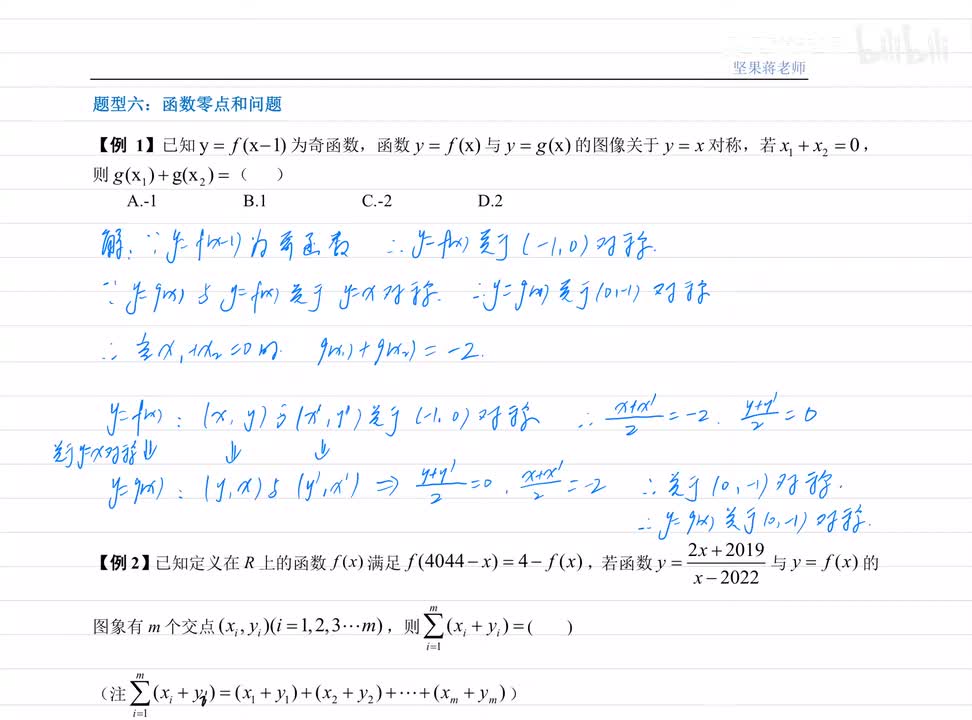 bilibili
坚果蒋老师
题型六：函数零点和问题
【例 1】已知 y = f(x−1) 为奇函数，函数 y = f(x) 与 y = g(x) 的图像关于 y = x 对称，若 x₁ + x₂ = 0，
则 g(x₁) + g(x₂) = （ ）
A.-1 B.1 C.-2 D.2
解：∵ y=f(x-1) 为奇函数 ∴ y=f(x) 关于 (-1,0) 对称.
∵ y=g(x) 与 y=f(x) 关于 y=x 对称. ∴ y=g(x) 关于 (0,-1) 对称
∴ 当 x₁+x₂=0 时. g(x₁)+g(x₂) = -2.
y=f(x) : (x, y) 与 (x', y') 关于 (-1,0) 对称 ∴ (x+x')/2 = -2. (y+y')/2 = 0
关于 y=x 对称 ↓ ↓ ↓
y=g(x) : (y, x) 与 (y', x') ⇒ (y+y')/2 = 0 , (x+x')/2 = -2 ∴ 关于 (0,-1) 对称.
∴ y=g(x) 关于 (0,-1) 对称.
【例 2】已知定义在 R 上的函数 f(x) 满足 f(4044 − x) = 4 − f(x)，若函数 y = (2x + 2019)/(x − 2022) 与 y = f(x) 的
图象有 m 个交点 (xᵢ, yᵢ)(i = 1,2,3⋯m)，则 ∑_{i=1}^{m} (xᵢ + yᵢ) = ( )
（注 ∑_{i=1}^{m} (xᵢ + yᵢ) = (x₁ + y₁) + (x₂ + y₂) + ⋯ + (xₘ + yₘ)）